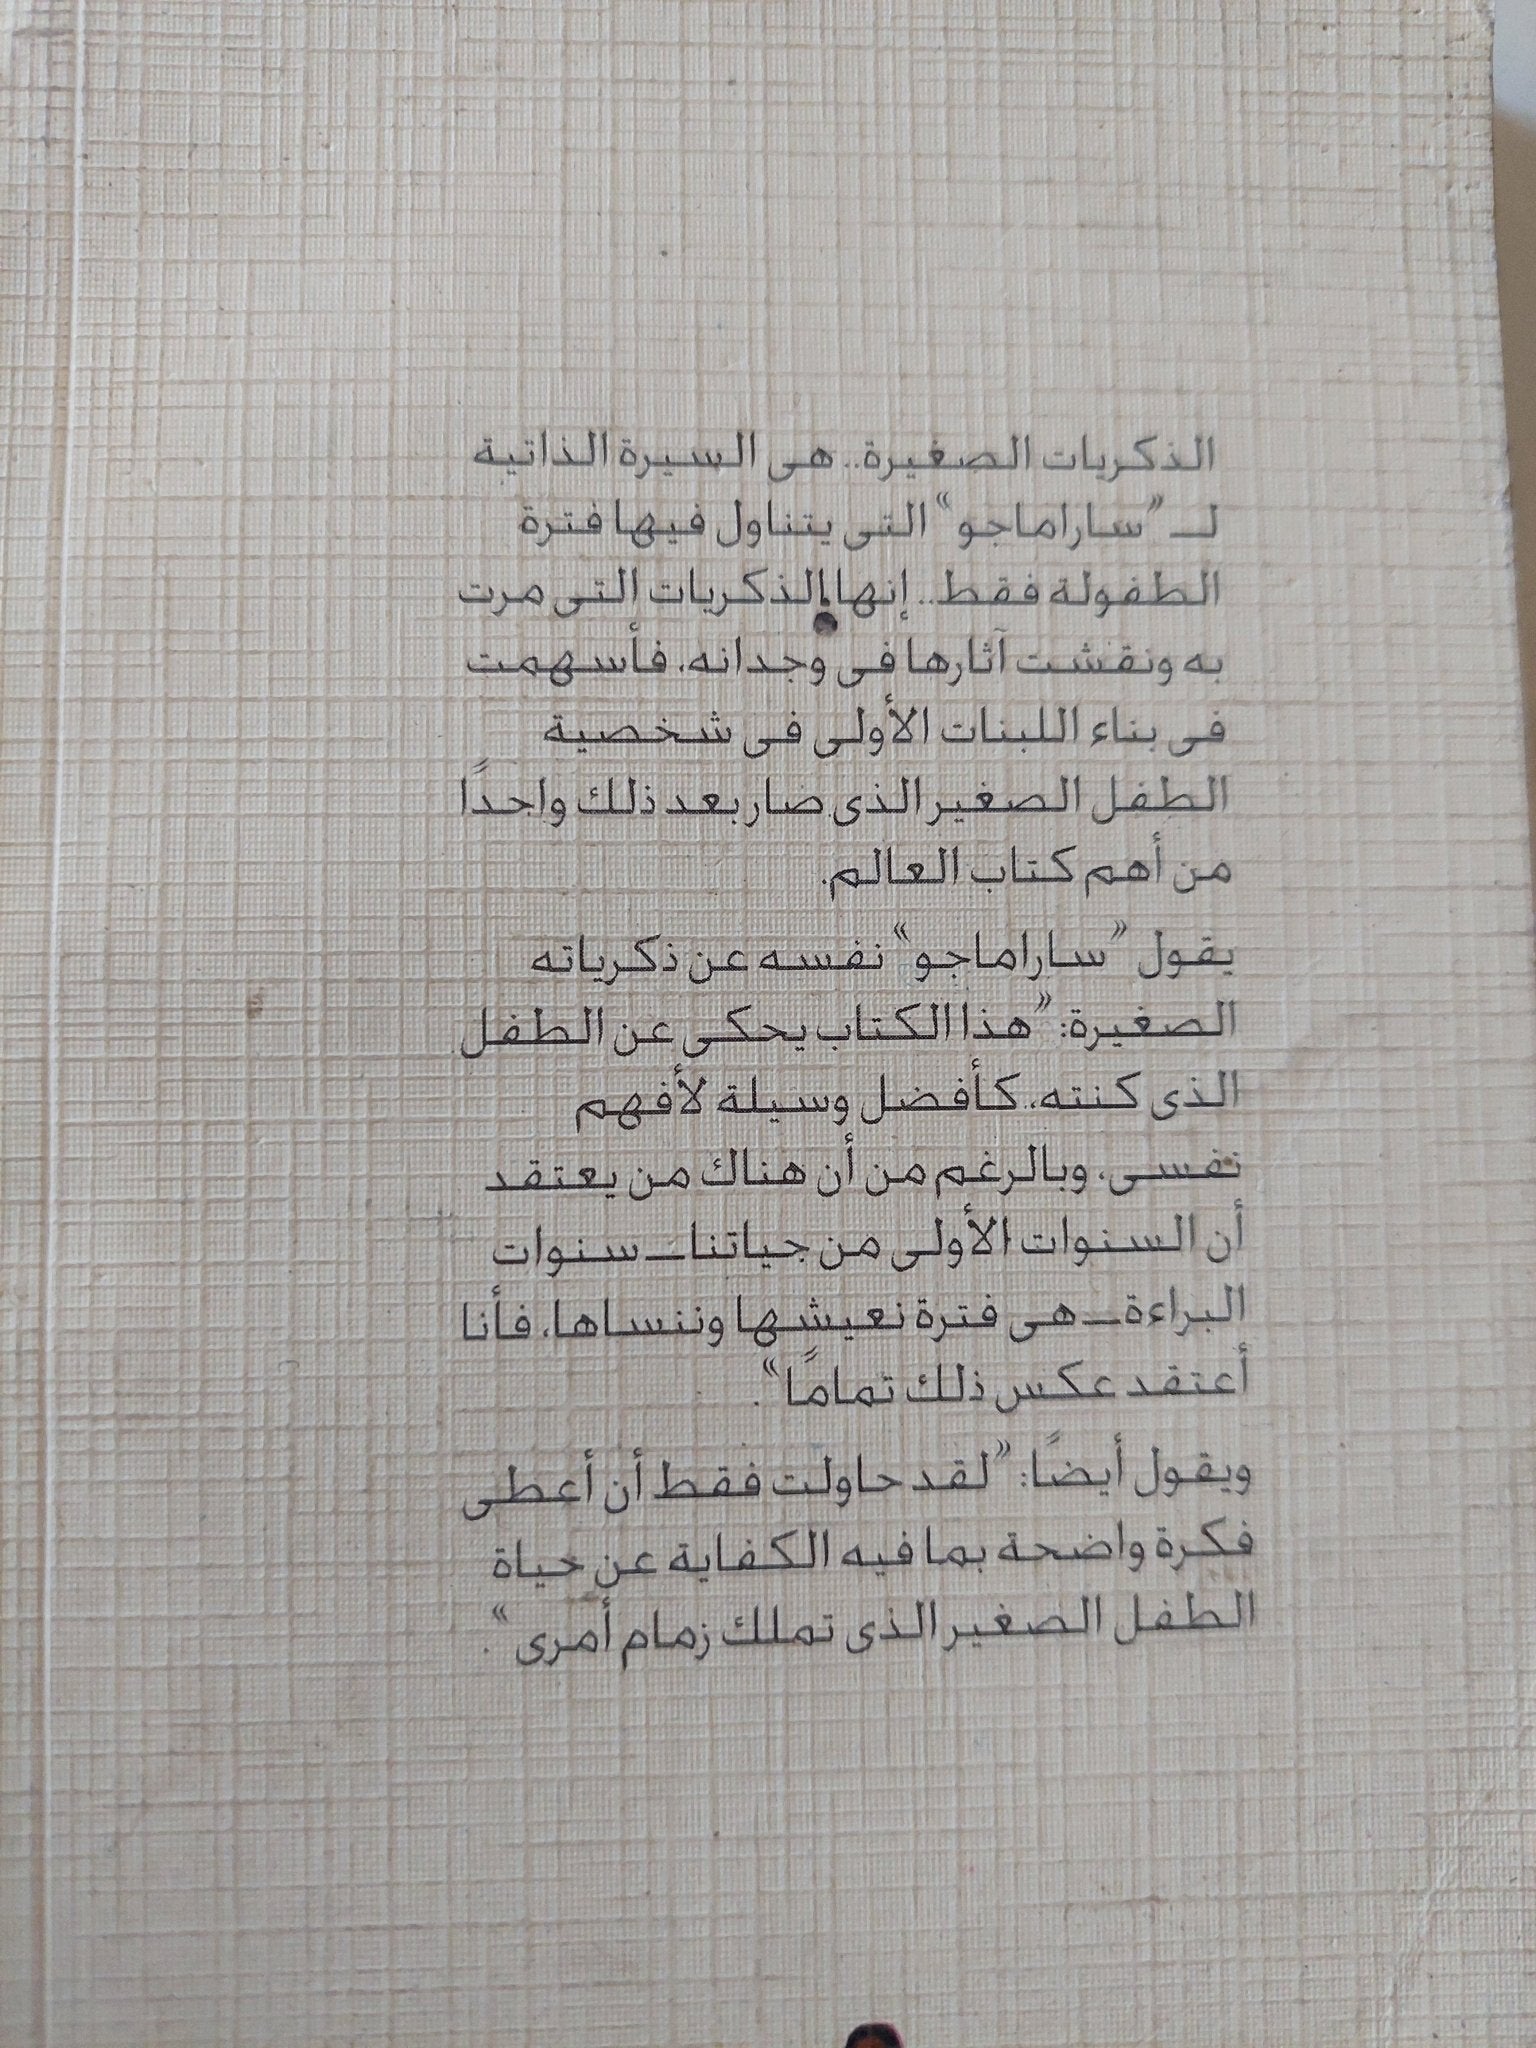 الذكريات الصغيرة.. هى السيرة الذاتية
لـ "ساراماجو" التى يتناول فيها فترة
الطفولة فقط.. إنها الذكريات التى مرت
به ونقشت آثارها فى وجدانه، فأسهمت
فى بناء اللبنات الأولى فى شخصية
الطفل الصغير الذى صار بعد ذلك واحدًا
من أهم كتاب العالم.
يقول "ساراماجو" نفسه عن ذكرياته
الصغيرة: "هذا الكتاب يحكى عن الطفل
الذى كنته، كأفضل وسيلة لأفهم
نفسى، وبالرغم من أن هناك من يعتقد
أن السنوات الأولى من حياتنا ـ سنوات
البراءة ـ هى فترة نعيشها وننساها، فأنا
أعتقد عكس ذلك تمامًا".
ويقول أيضًا: "لقد حاولت فقط أن أعطى
فكرة واضحة بما فيه الكفاية عن حياة
الطفل الصغير الذى تملك زمام أمرى".